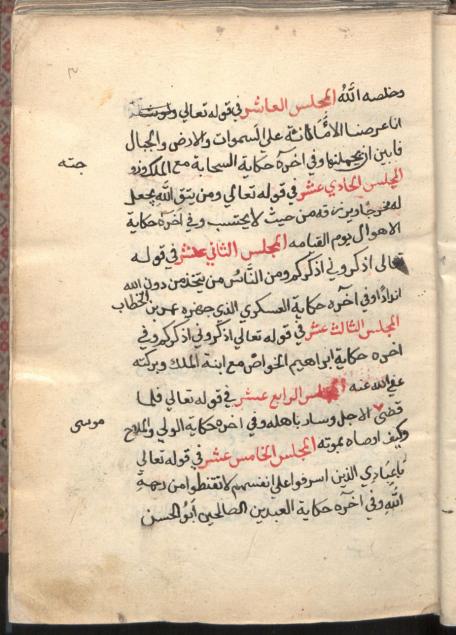 وخلصه الله المجلس العاشر في قوله تعالى
انا عرضنا الامانة على السموات والارض والجبال
فابين ان يحملنها وفي اخره حكاية السحابة مع الملك وزو
جته
المجلس الحادي عشر في قوله تعالى ومن يتق الله يجعل
له مخرجا ويرزقه من حيث لا يحتسب وفي اخره حكاية
الاهوال يوم القيامه المجلس الثاني عشر في قوله
تعالى اذكروني اذكركم ومن الناس من يتخذ من دون الله
اندادا وفي اخره حكاية العسكري الذي جهزه عمر بن الخطاب
المجلس الثالث عشر في قوله تعالى اذكروني اذكركم وفي
اخره حكاية ابراهيم الخواص مع ابنة الملك وبركته
رضي الله عنه المجلس الرابع عشر في قوله تعالى فلما
قضى الاجل وسار باهله وفي اخره حكاية الولي والملاح
موسى
وكيف اوصاه بموته المجلس الخامس عشر في قوله تعالى
يا عبادي الذين اسرفوا على انفسهم لا تقنطوا من رحمة
الله وفي اخره حكاية العبدين الصالحين ابو الحسن